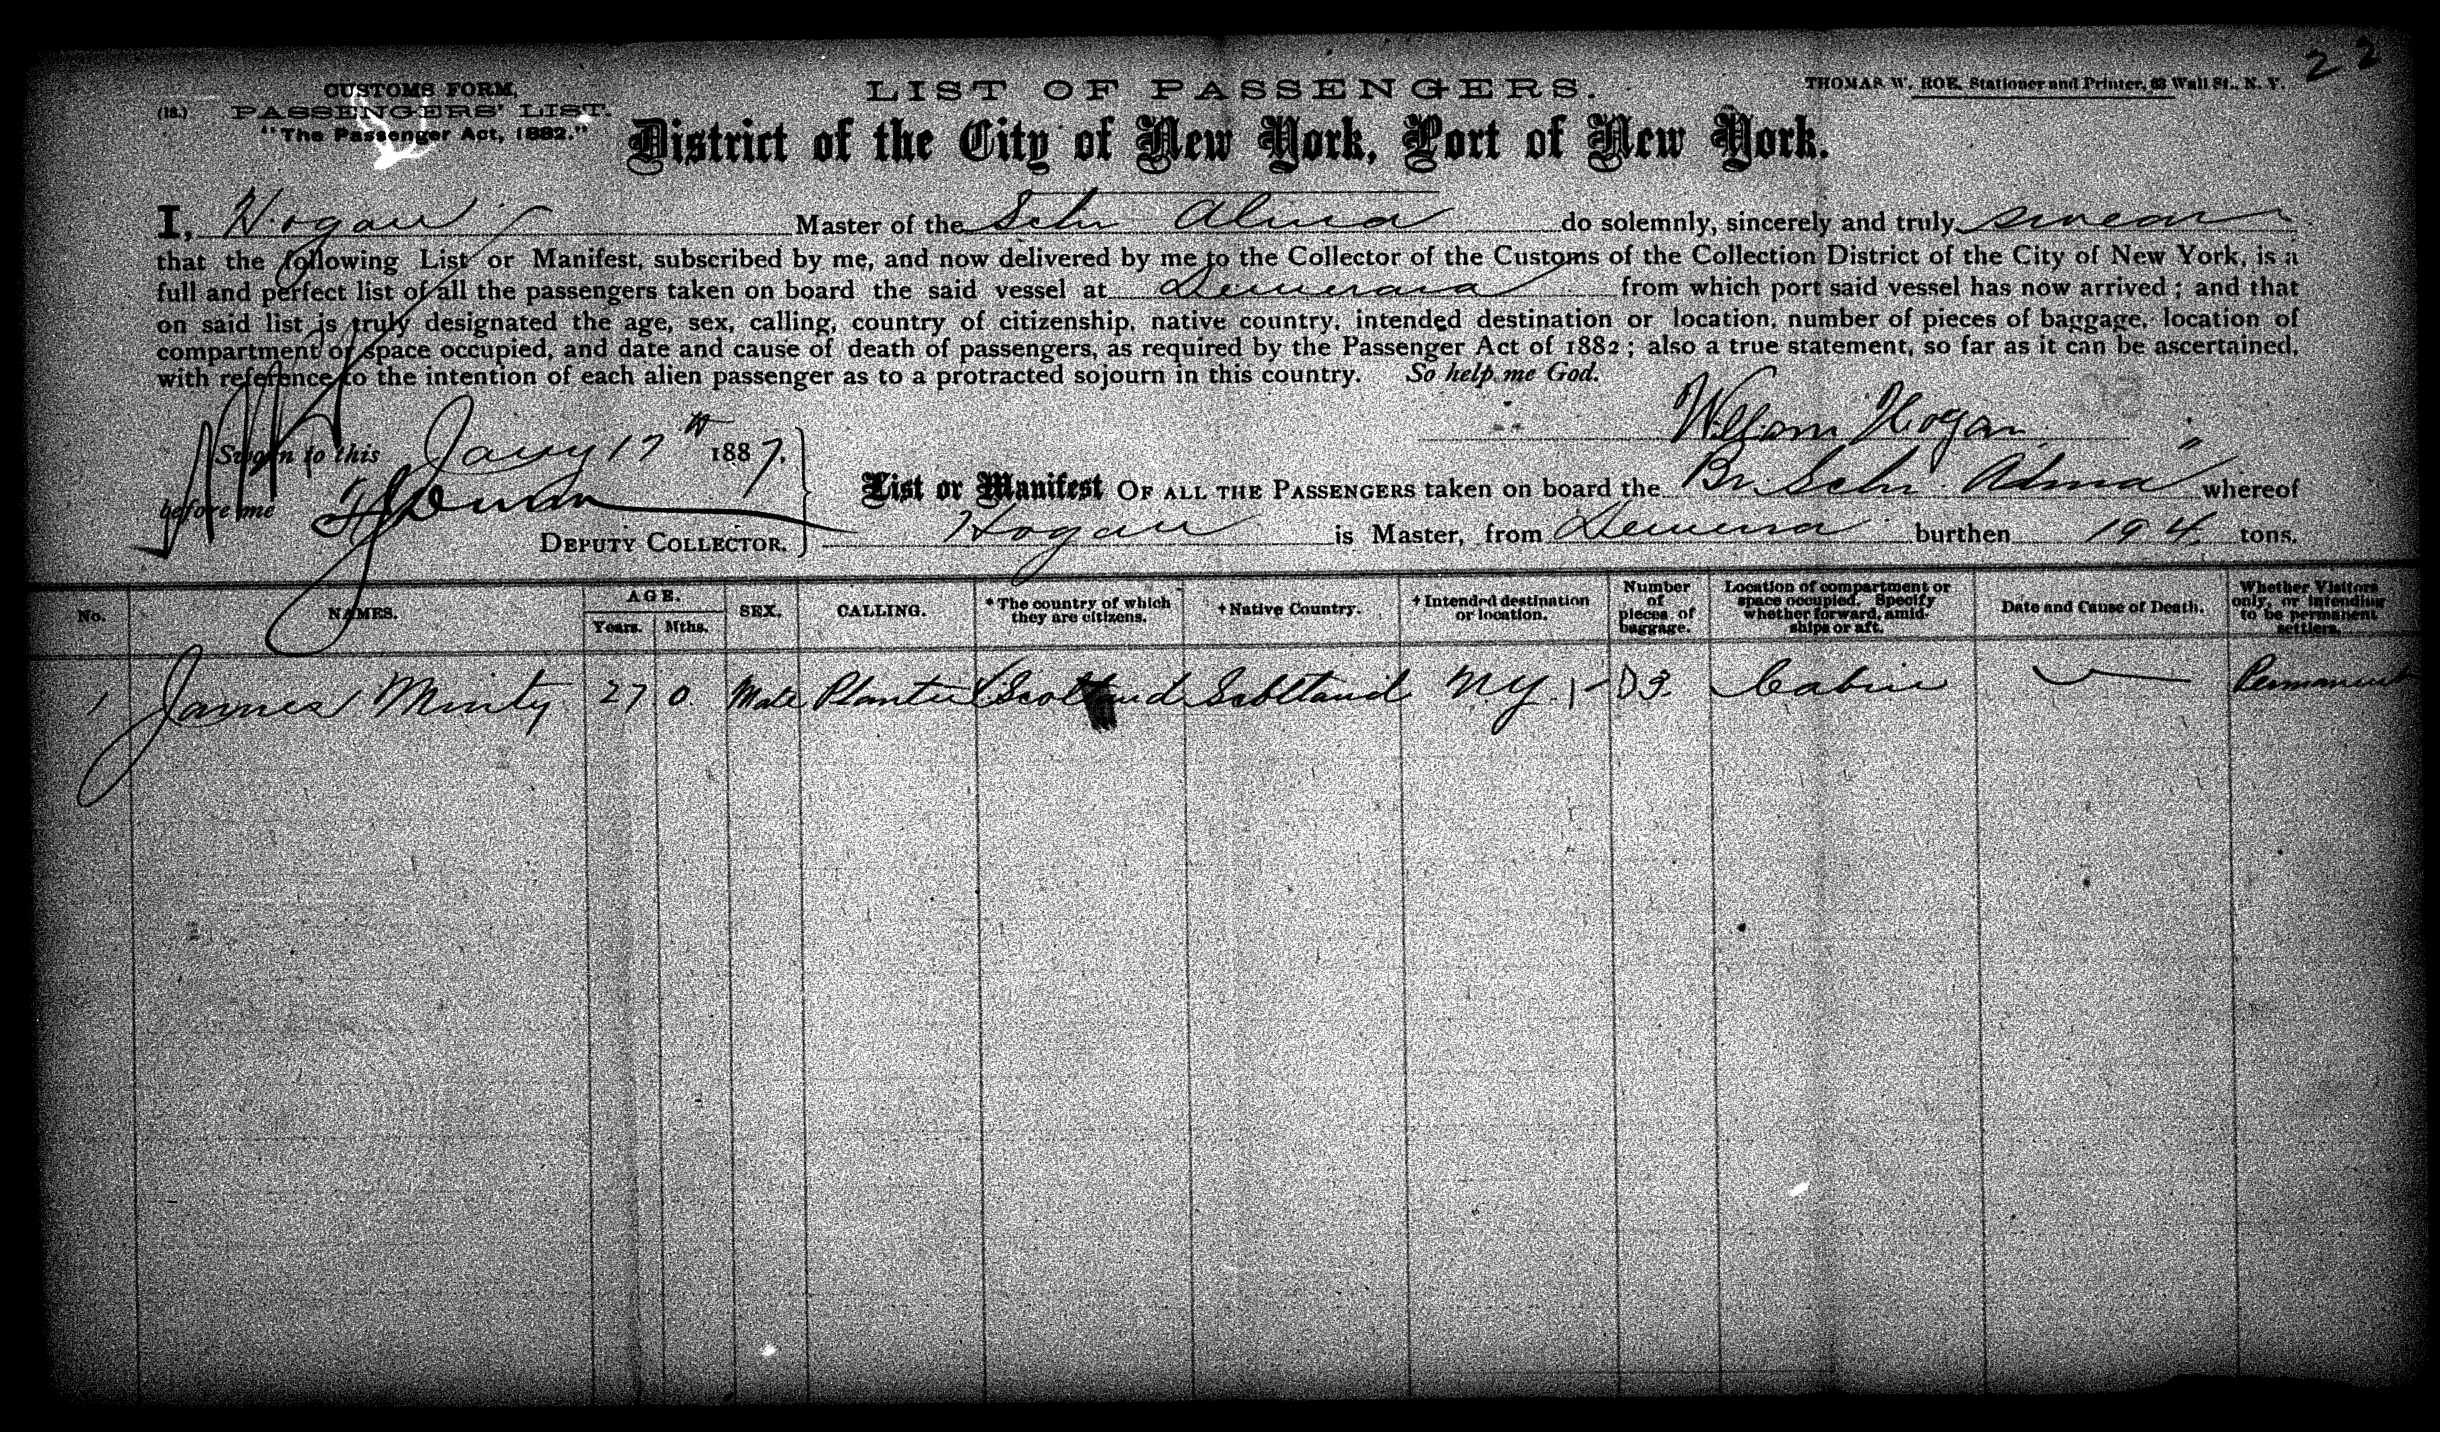 22
CUSTOMS FORM,
(18.) PASSENGERS' LIST.
"The Passenger Act, 1882."
LIST OF PASSENGERS.
THOMAS W. ROE, Stationer and Printer, 63 Wall St., N. Y.
District of the City of New York, Port of New York.
I, Hogan Master of the Schr Alma do solemnly, sincerely and truly swear
that the following List or Manifest, subscribed by me, and now delivered by me to the Collector of the Customs of the Collection District of the City of New York, is a
full and perfect list of all the passengers taken on board the said vessel at Demerara from which port said vessel has now arrived; and that
on said list is truly designated the age, sex, calling, country of citizenship, native country, intended destination or location, number of pieces of baggage, location of
compartment or space occupied, and date and cause of death of passengers, as required by the Passenger Act of 1882; also a true statement, so far as it can be ascertained,
with reference to the intention of each alien passenger as to a protracted sojourn in this country. So help me God.
William Hogan
Sworn to this Jany 17th 1887.
before me
DEPUTY COLLECTOR.
List or Manifest OF ALL THE PASSENGERS taken on board the Br. Schr. Alma" whereof
Hogan is Master, from Demerra burthen 194 tons.
No. NAMES. AGE. Years. Mths. SEX. CALLING. *The country of which they are citizens. †Native Country. ‡Intended destination or location. Number of pieces of baggage. Location of compartment or space occupied. Specify whether forward, amidships or aft. Date and Cause of Death. Whether Visitors only, or intending to be permanent settlers.
1 James Minty 27 0. Male Planter Scotland Scotland N.Y. 3. Cabin Permanent